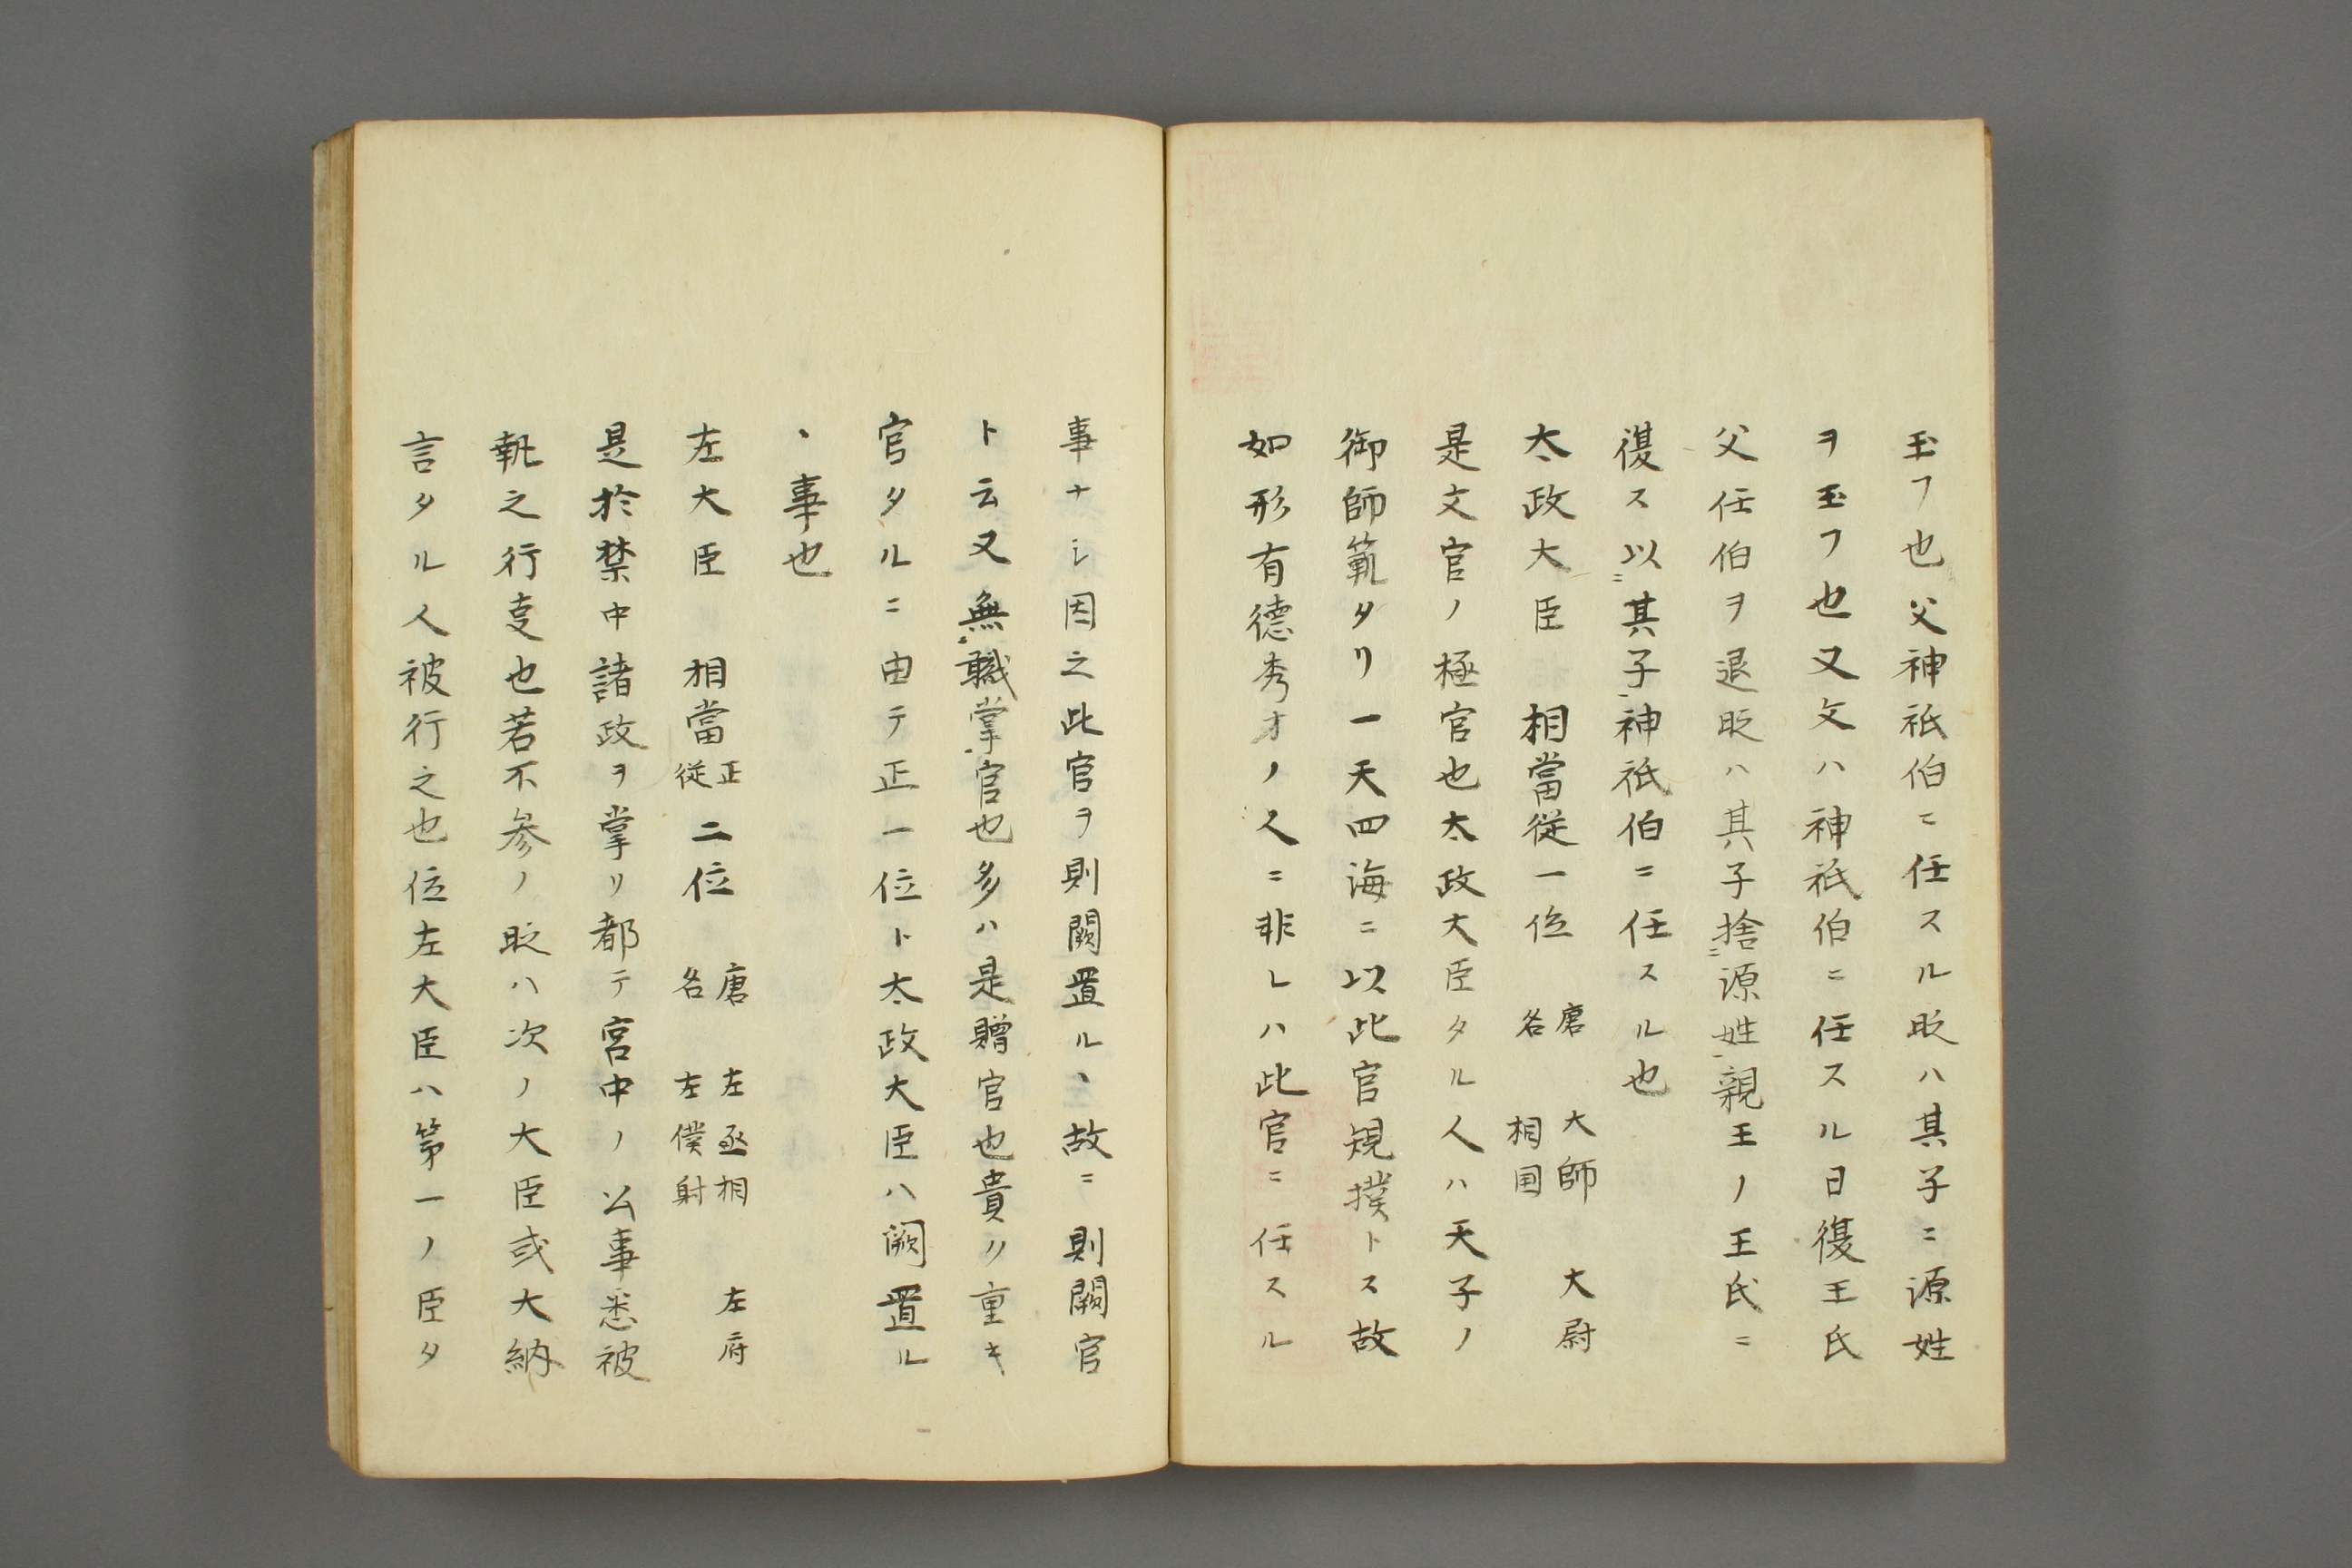 玉フ也父神祇伯ニ任スル時ハ其子ニ源姓
ヲ玉フ也又父ハ神祇伯ニ任スル日復王氏
父任伯ヲ退時ハ其子捨ニ源姓親王ノ王氏ニ
復ス以ニ其子神祇伯ニ任スル也
太政大臣　相當従一位　唐名　大師　相国　大尉
是文官ノ極官也太政大臣タル人ハ天子ノ
御師範タリ一天四海ニ以此官規模トス故
如形有德秀才ノ人ニ非レハ此官ニ任スル
事ナシ因之此官ヲ則闕置ルヽ故ニ則闕官
ト云又無職掌官也多ハ是贈官也貴リ重キ
官タルニ由テ正一位ト太政大臣ハ闕置ル
ヽ事也
左大臣　相當正従二位　唐名　左丞相　左僕射　左府
是於禁中諸政ヲ掌リ都テ宮中ノ公事悉被
執之行叓也若不参ノ時ハ次ノ大臣或大納
言タル人被行之也位左大臣ハ第一ノ臣タ